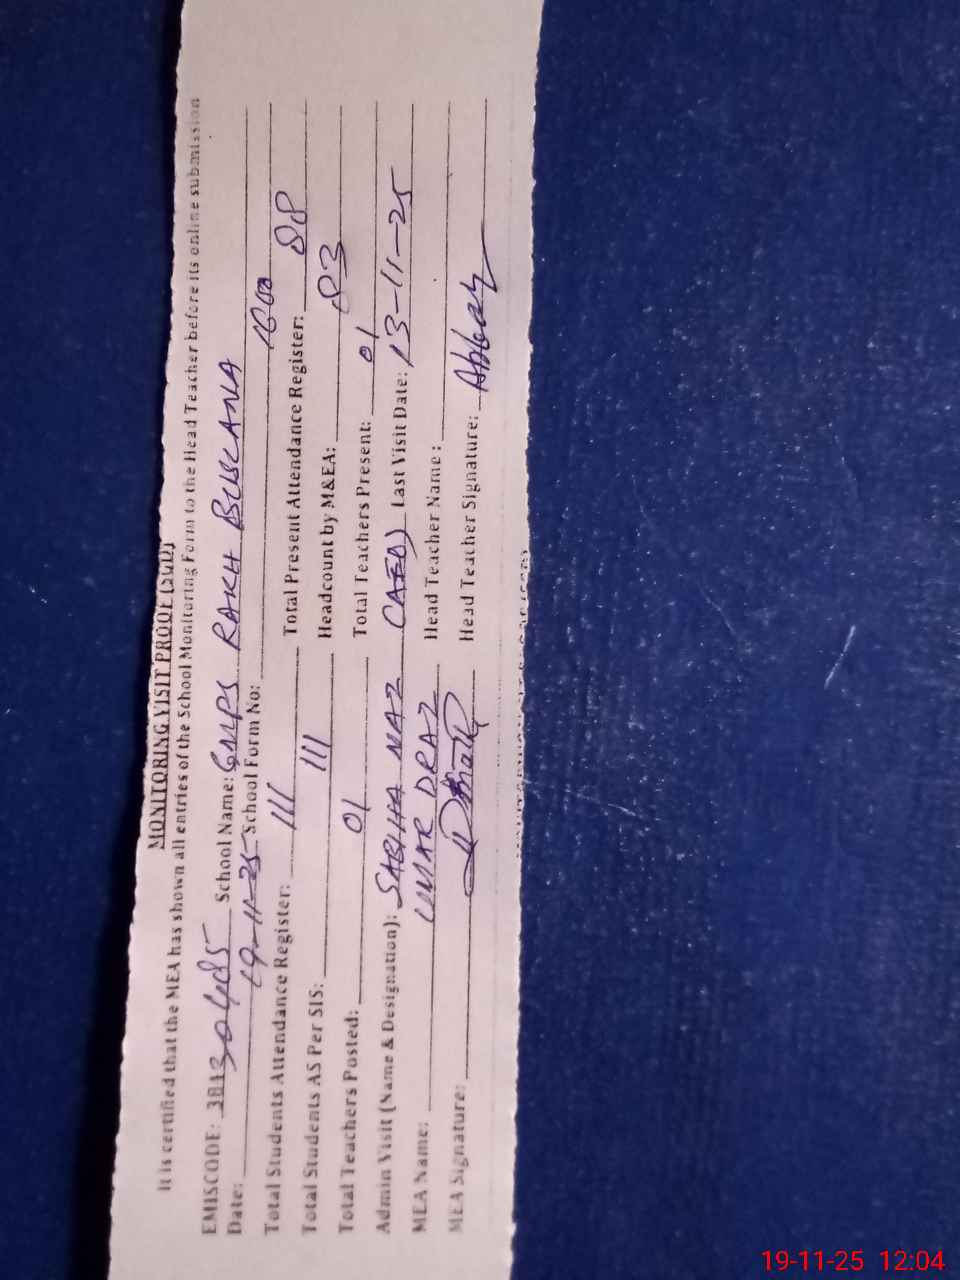 MONITORING VISIT PROOF (SGD)
It is certified that the MEA has shown all entries of the School Monitoring Form to the Head Teacher before its online submission
EMISCODE: School Name: GMPS RAKH
Date: 19-11-25 School Form No:
Total Students Attendance Register: 111 Total Present Attendance Register: 88
Total Students AS Per SIS: 111 Headcount by M&EA: 83
Total Teachers Posted: 01 Total Teachers Present: 01
Admin Visit (Name & Designation): SABIHA NAZ Last Visit Date: 13-11-25
MEA Name: UMAR DRAZ Head Teacher Name :
MEA Signature: Head Teacher Signature:
19-11-25 12:04